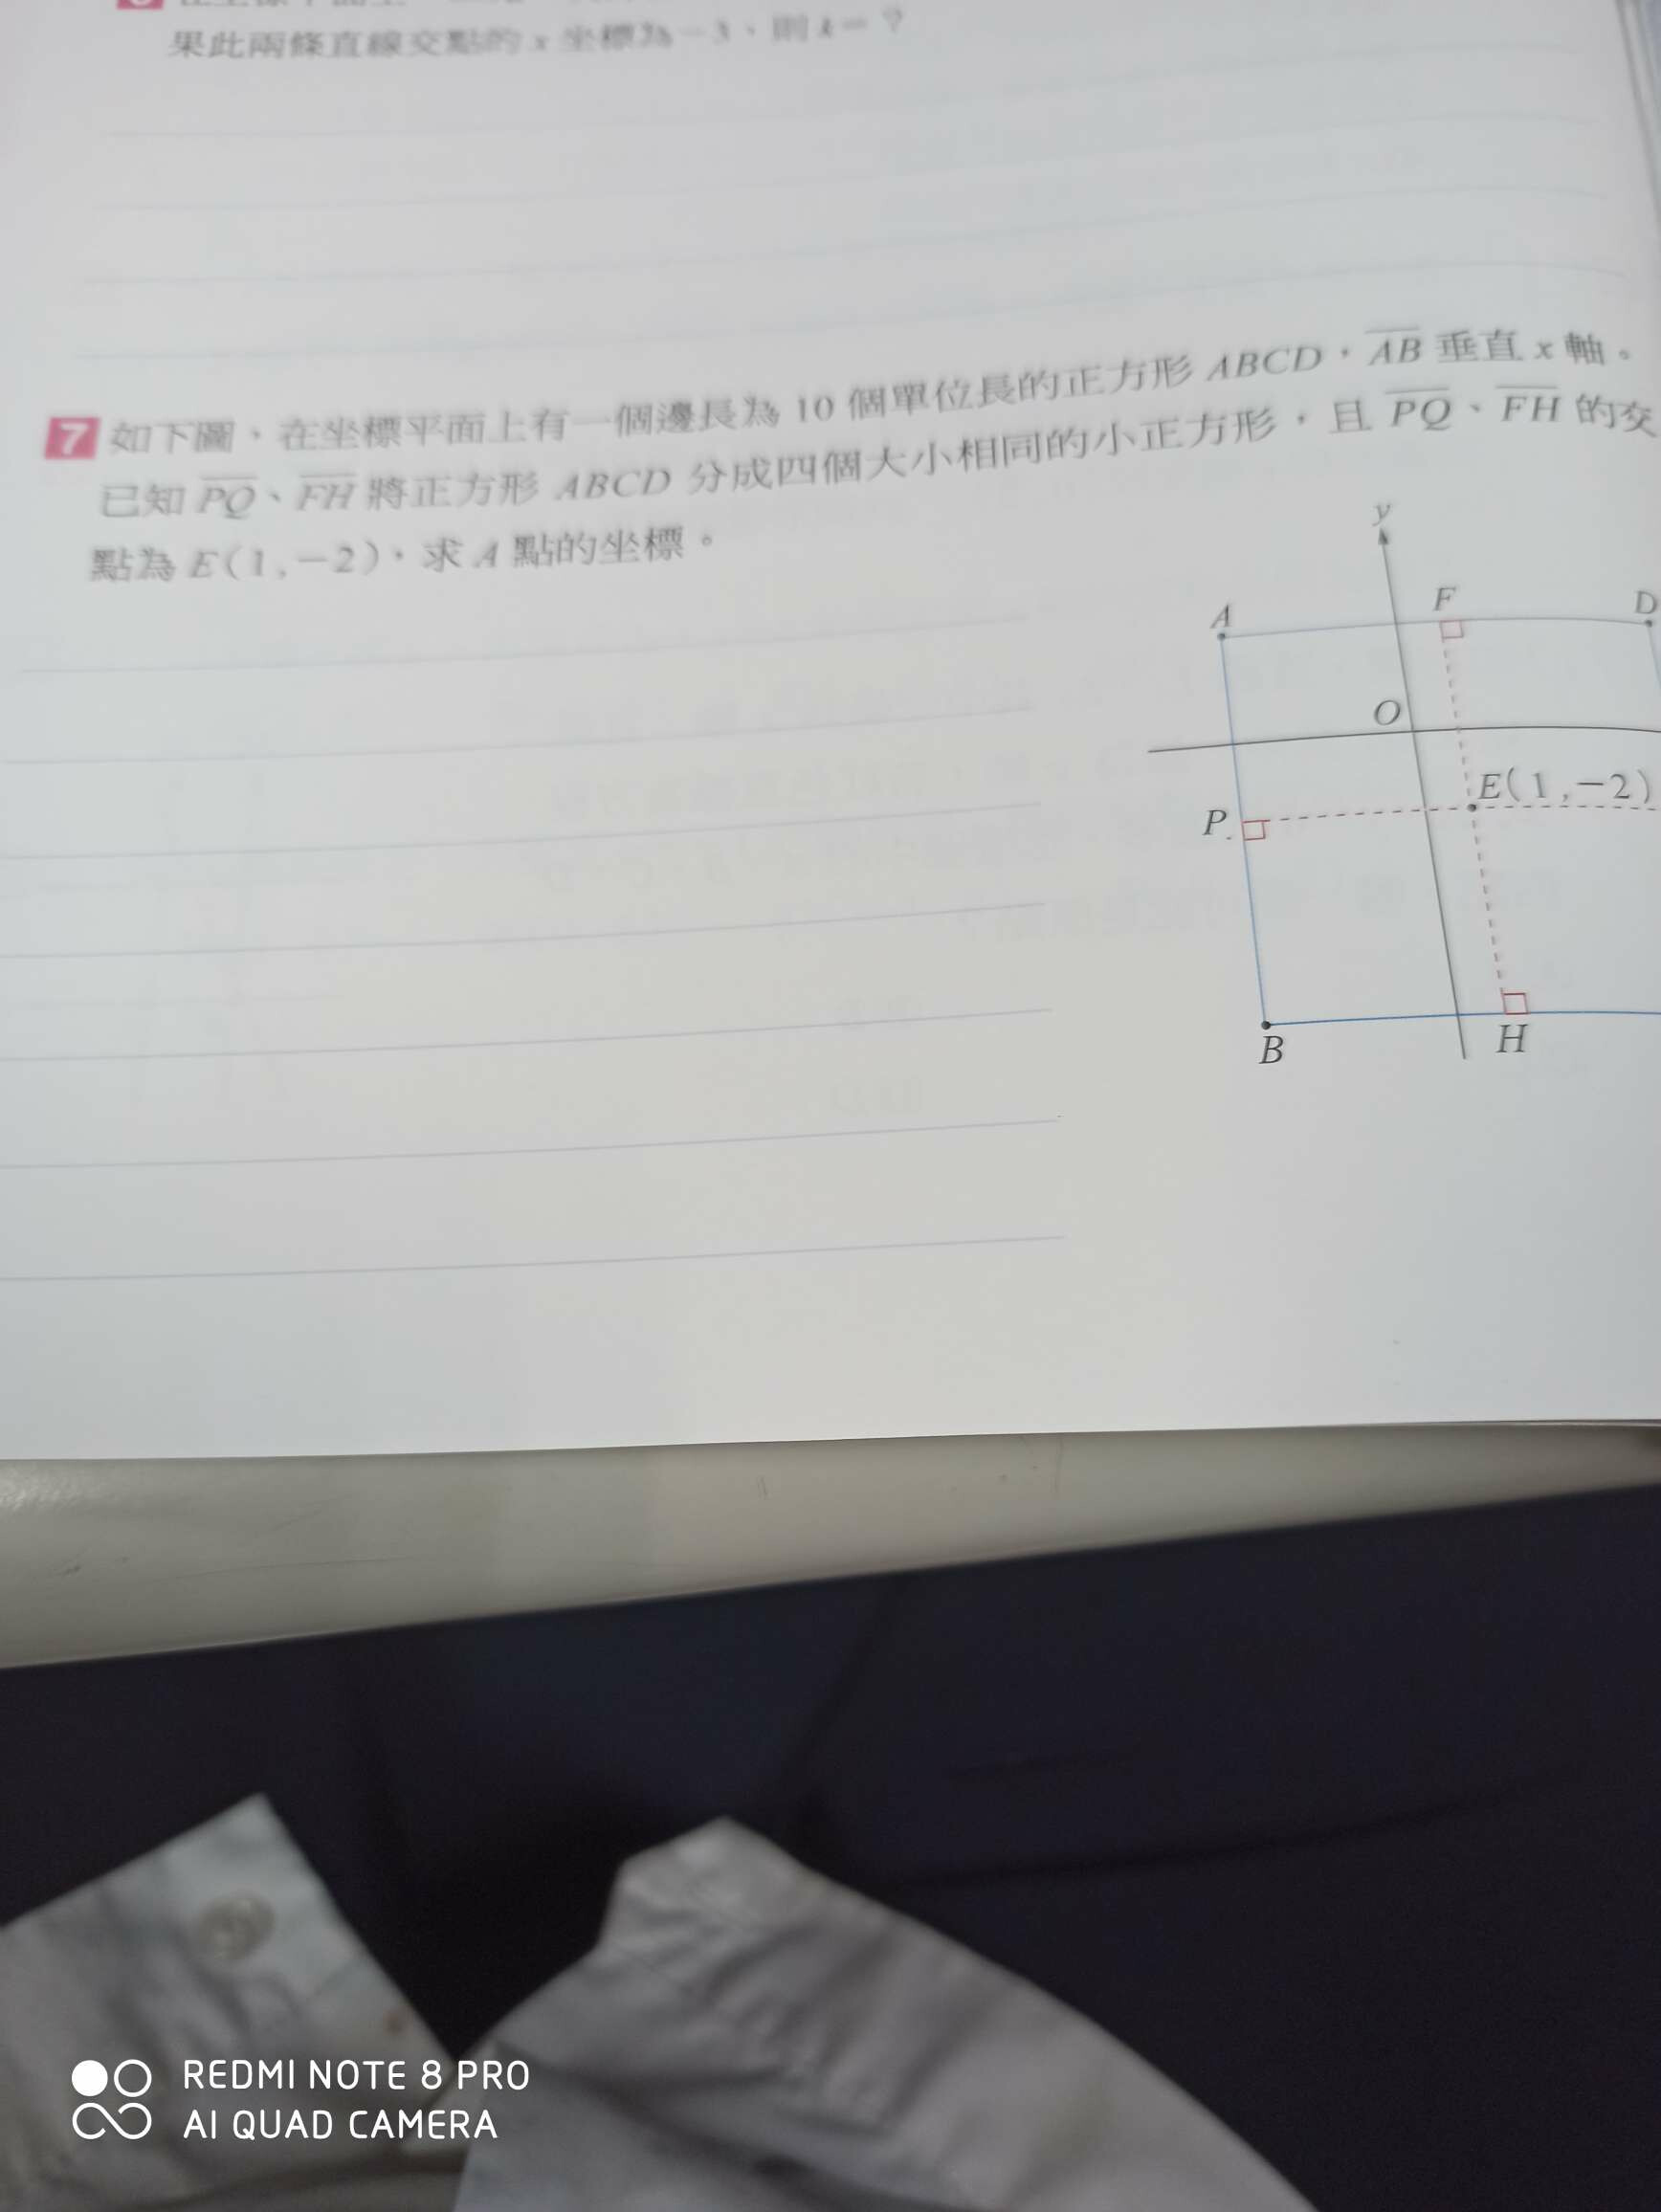 果此兩條直線交點的 x 坐標為-3,則 k=?
7 如下圖,在坐標平面上有一個邊長為 10 個單位長的正方形 ABCD,AB 垂直 x 軸。
已知 PQ、FH 將正方形 ABCD 分成四個大小相同的小正方形,且 PQ、FH 的交
點為 E(1,-2),求 A 點的坐標。
y
A
F
D
O
E(1,-2)
P
B
H
REDMI NOTE 8 PRO
AI QUAD CAMERA